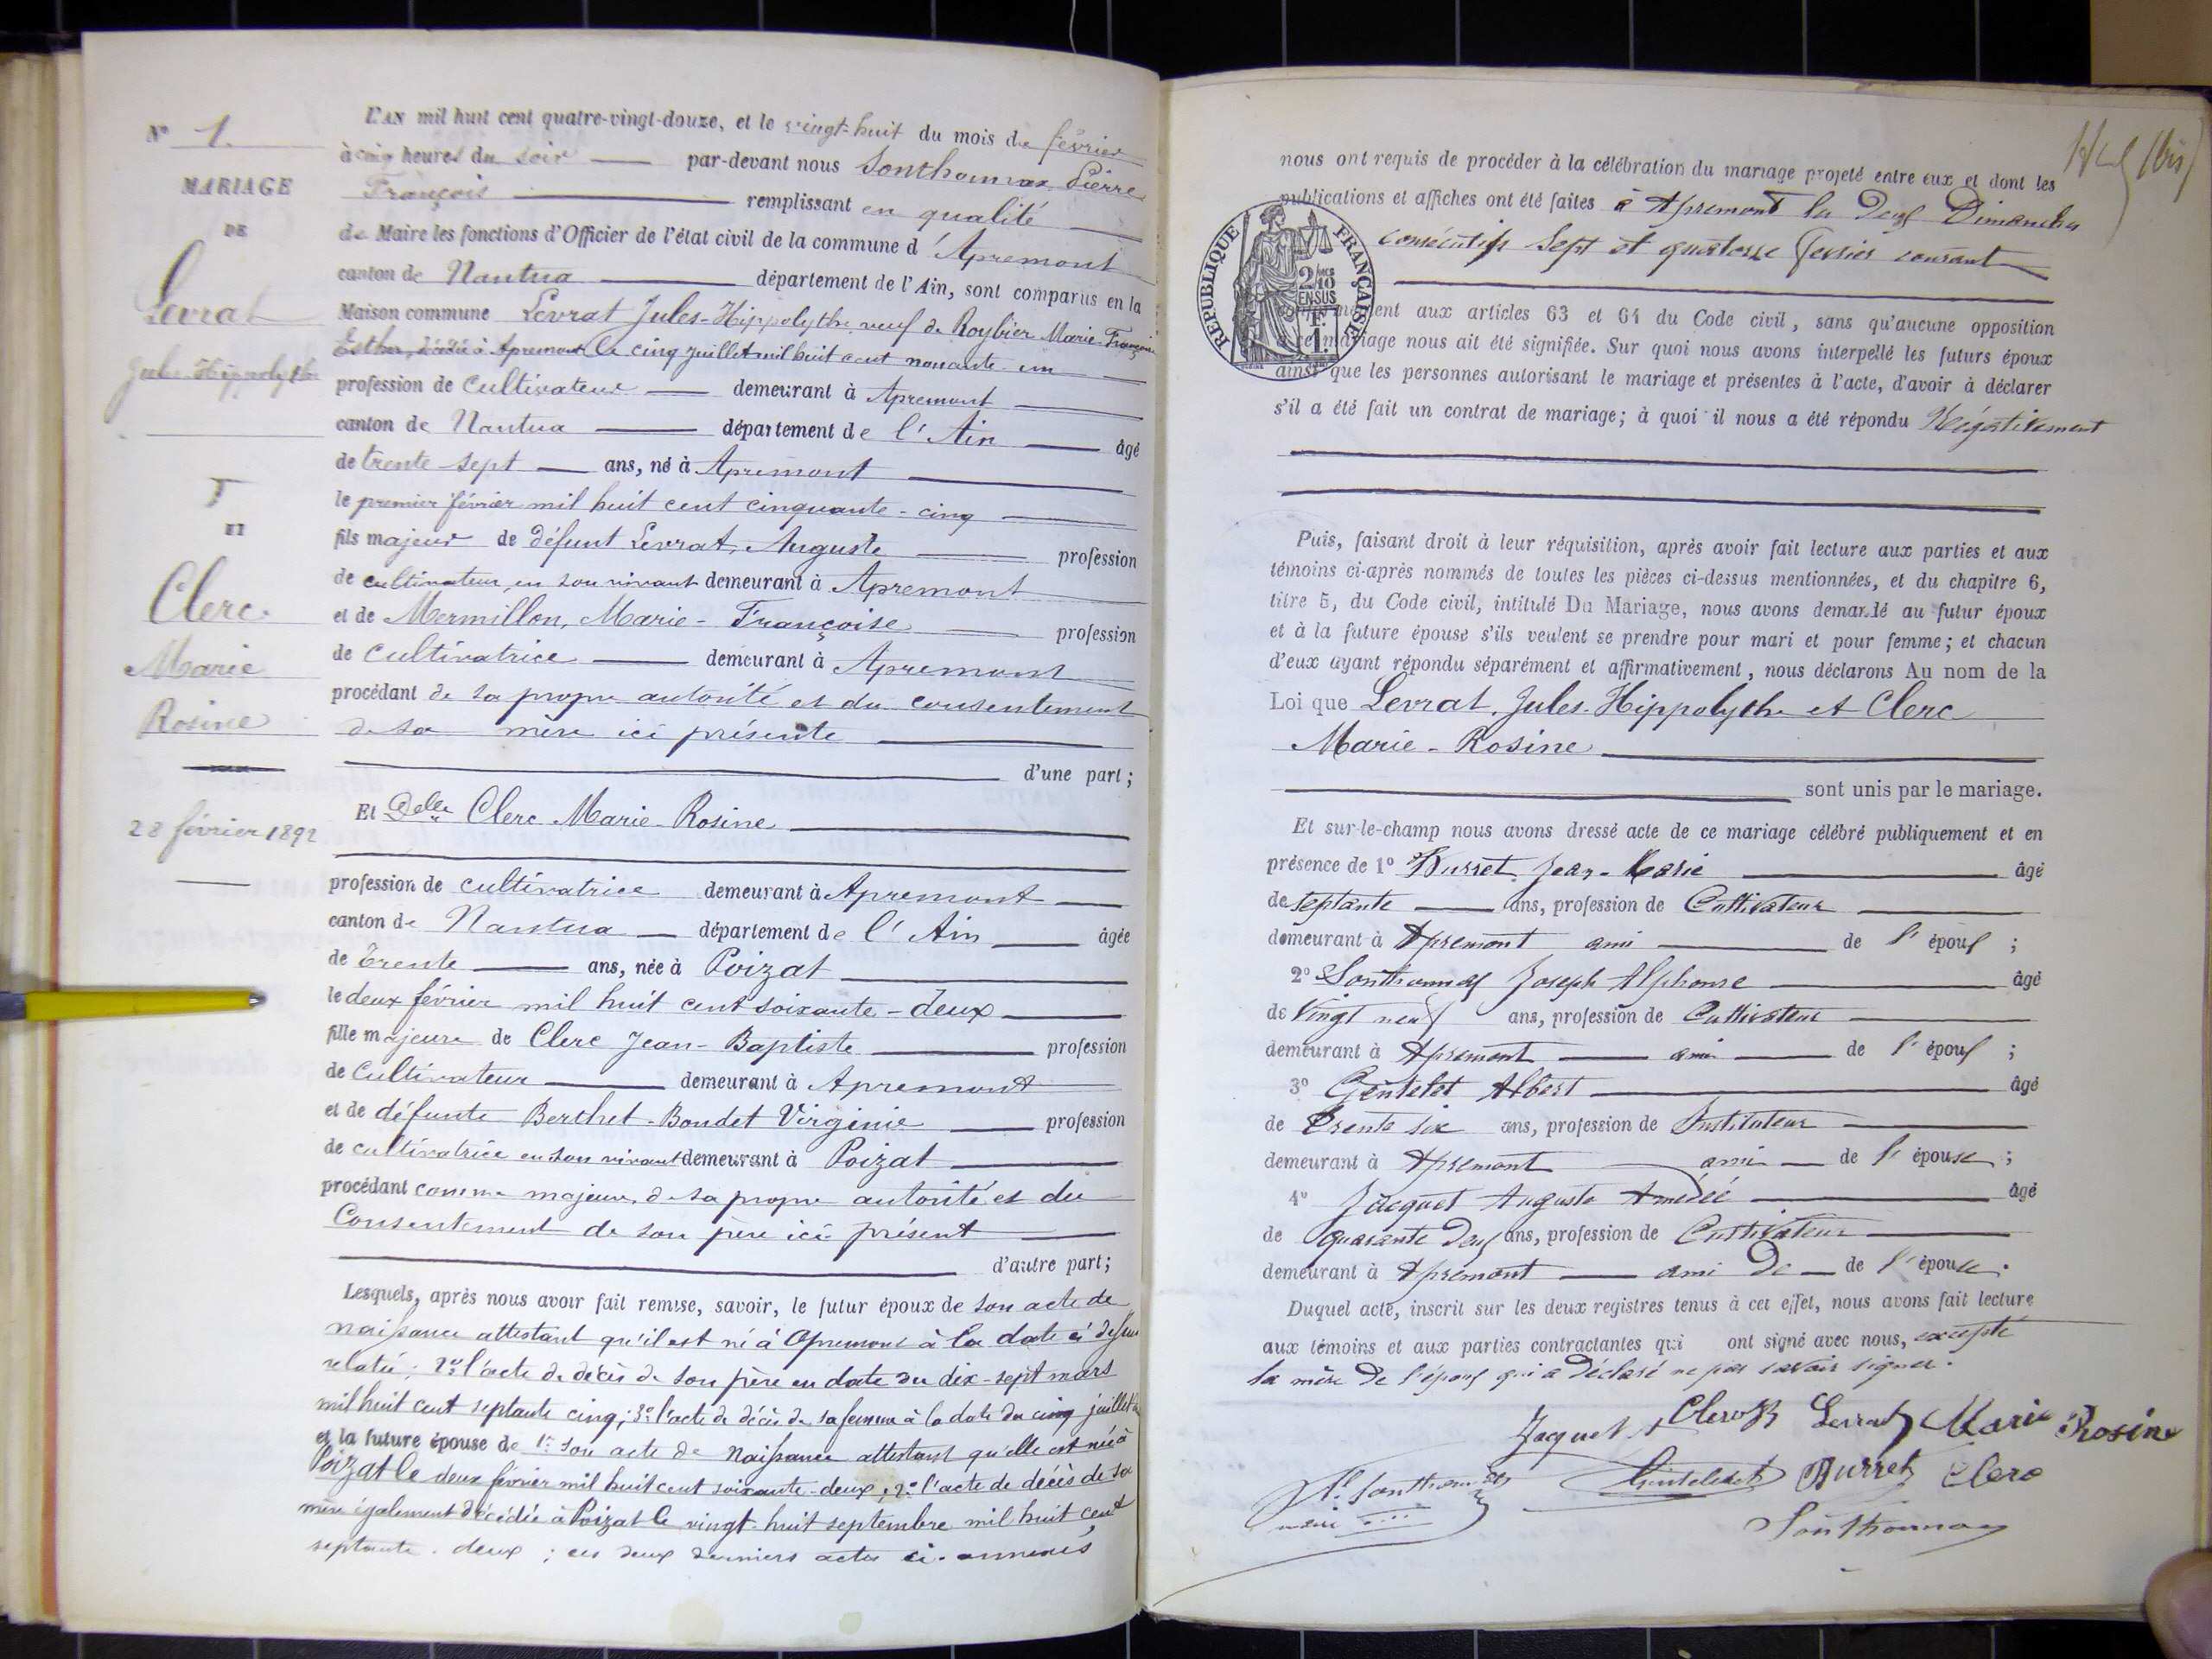 N° 1.
MARIAGE
DE
Levrat
Jules-Hippolythe
ET
Clerc
Marie
Rosine
28 février 1892
L'AN mil huit cent quatre-vingt-douze, et le vingt-huit du mois de février
à cinq heures du soir par-devant nous Sonthonnax Pierre
François remplissant en qualité
de Maire les fonctions d'Officier de l'état civil de la commune d'Apremont
canton de Nantua département de l'Ain, sont comparus en la
Maison commune Levrat Jules-Hippolythe veuf de Roybier Marie-Françoise
Esther, décédée à Apremont le cinq juillet mil huit cent nonante-un
profession de cultivateur demeurant à Apremont
canton de Nantua département de l'Ain âgé
de trente-sept ans, né à Apremont
le premier février mil huit cent cinquante-cinq
fils majeur de défunt Levrat, Auguste profession
de cultivateur, en son vivant demeurant à Apremont
et de Mermillon, Marie-Françoise profession
de cultivatrice demeurant à Apremont
procédant de sa propre autorité et du consentement
de sa mère ici présente
d'une part;
Et Delle Clerc Marie-Rosine
profession de cultivatrice demeurant à Apremont
canton de Nantua département de l'Ain âgée
de trente ans, née à Poizat
le deux février mil huit cent soixante-deux
fille majeure de Clerc Jean-Baptiste profession
de Cultivateur demeurant à Apremont
et de défunte Berthet-Bondet Virginie profession
de cultivatrice en son vivant demeurant à Poizat
procédant comme majeure, de sa propre autorité et du
Consentement de son père ici présent
d'autre part;
Lesquels, après nous avoir fait remise, savoir, le futur époux de son acte de
naissance attestant qu'il est né à Apremont à la date ci-dessus
relatée; 2° l'acte de décès de son père en date du dix-sept mars
mil huit cent septante cinq; 3° l'acte de décès de sa femme à la date du cinq juillet
et la future épouse de 1° son acte de naissance attestant qu'elle est née à
Poizat le deux février mil huit cent soixante-deux, 2° l'acte de décès de sa
mère également décédée à Poizat le vingt-huit septembre mil huit cent
septante-deux; ces deux derniers actes ci-annexés
nous ont requis de procéder à la célébration du mariage projeté entre eux et dont les
publications et affiches ont été faites à Apremont les deux Dimanches
consécutifs Sept et quatorze Fevrier courant
RÉPUBLIQUE FRANÇAISE
2/10 EN SUS
1 F.
conformément aux articles 63 et 64 du Code civil, sans qu'aucune opposition
à ce mariage nous ait été signifiée. Sur quoi nous avons interpellé les futurs époux
ainsi que les personnes autorisant le mariage et présentes à l'acte, d'avoir à déclarer
s'il a été fait un contrat de mariage; à quoi il nous a été répondu Négativement
Puis, faisant droit à leur réquisition, après avoir fait lecture aux parties et aux
témoins ci-après nommés de toutes les pièces ci-dessus mentionnées, et du chapitre 6,
titre 5, du Code civil, intitulé Du Mariage, nous avons demandé au futur époux
et à la future épouse s'ils veulent se prendre pour mari et pour femme; et chacun
d'eux ayant répondu séparément et affirmativement, nous déclarons Au nom de la
Loi que Levrat, Jules-Hippolythe et Clerc
Marie-Rosine
sont unis par le mariage.
Et sur-le-champ nous avons dressé acte de ce mariage célébré publiquement et en
présence de 1° Jean-Marie âgé
de septante ans, profession de Cultivateur
demeurant à Apremont ami de l'époux;
2° Sonthonnax Joseph Alphonse âgé
de Vingt neuf ans, profession de Cultivateur
demeurant à Apremont ami de l'époux;
3° Gentelet Albert âgé
de Trente six ans, profession de Instituteur
demeurant à Apremont ami de l'épouse;
4° Jacquet Auguste Amédée âgé
de quarante deux ans, profession de Cultivateur
demeurant à Apremont ami de de l'épouse.
Duquel acte, inscrit sur les deux registres tenus à cet effet, nous avons fait lecture
aux témoins et aux parties contractantes qui ont signé avec nous, excepté
la mère de l'époux qui a déclaré ne pas savoir signer.
Jacquet A Clerc JB Levrat Marie Rosine
Sonthonnax Gentelet Clerc
maire
Sonthonnax